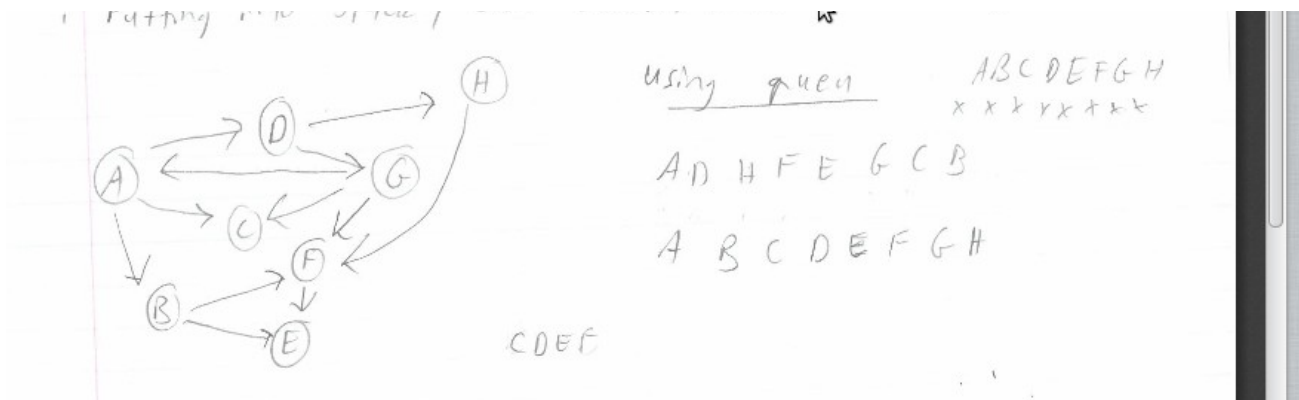 Putting into
H
D
A
G
C
F
B
E
Using queu
ABCDEFGH
x x x x x x x x
A D H F E G C B
A B C D E F G H
C D E F